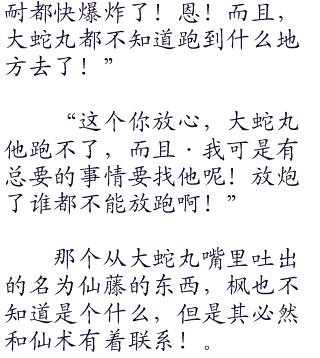 耐都快爆炸了！恩！而且，
大蛇丸都不知道跑到什么地
方去了！”
“这个你放心，大蛇丸
他跑不了，而且·我可是有
总要的事情要找他呢！放炮
了谁都不能放跑啊！”
那个从大蛇丸嘴里吐出
的名为仙藤的东西，枫也不
知道是个什么，但是其必然
和仙术有着联系！。